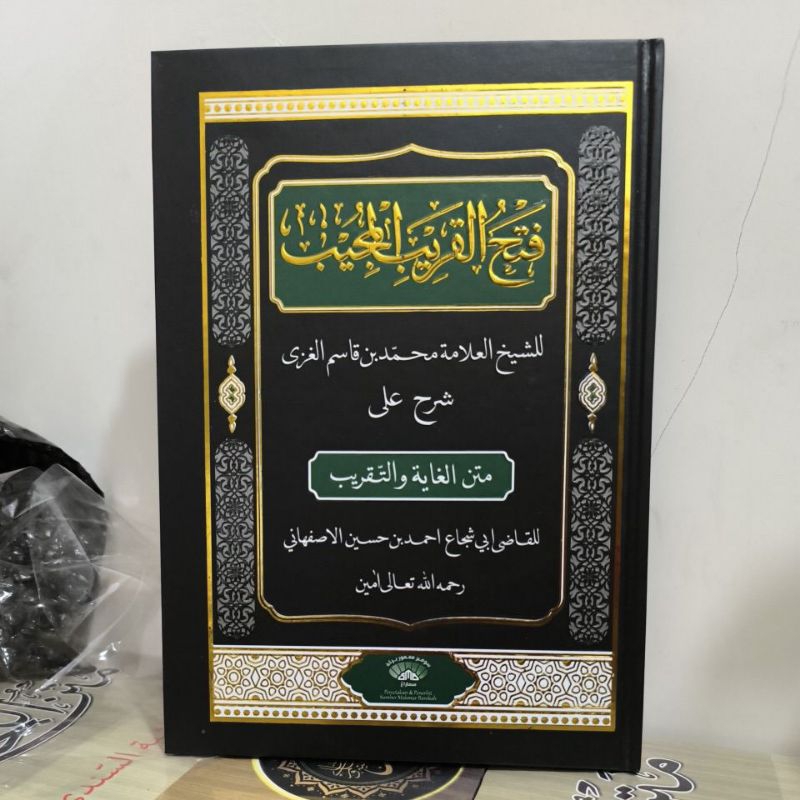 فَتْحُ القَرِيْبِ المُجِيْبِ
للشيخ العلامة محمّد بن قاسم الغزى
شرح على
متن الغاية والتّقريب
للقاضى ابي شجاع احمد بن حسين الاصفهاني
رحمه الله تعالى اٰمين
Percetakan & Penerbit
Sumber Makmur Barokah